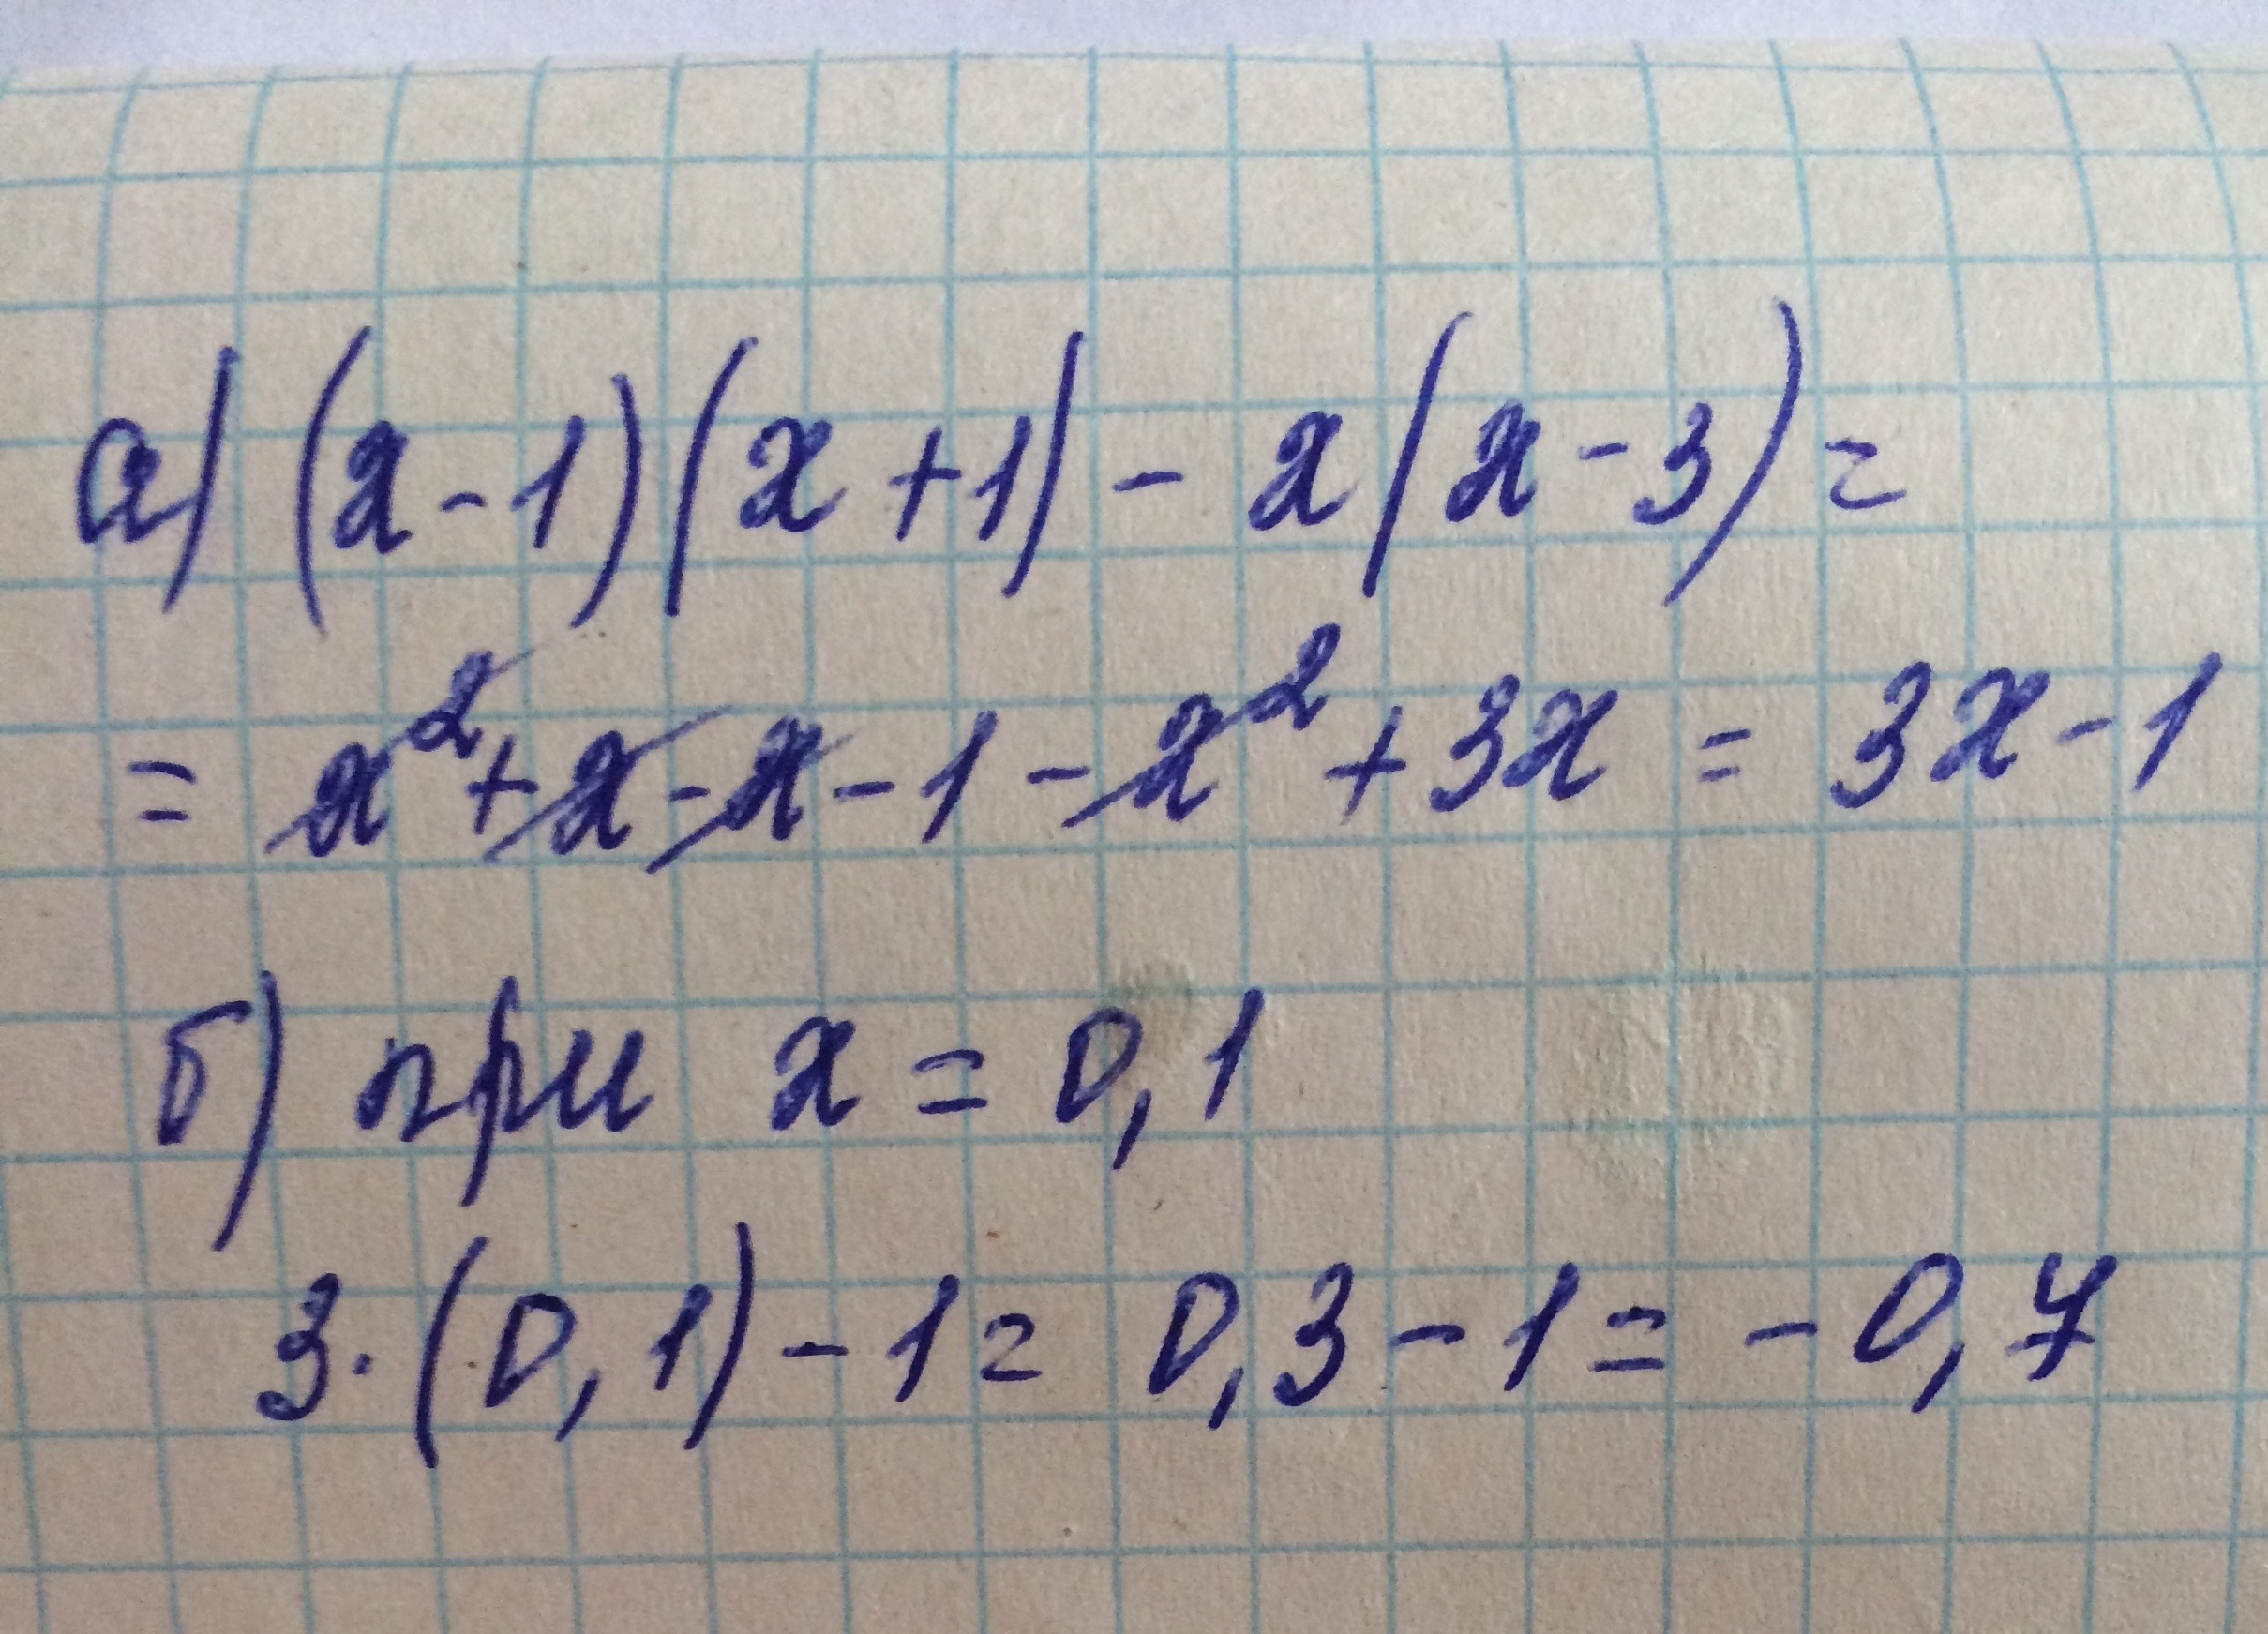 а) (x-1)(x+1) - x(x-3) =
= x²+x-x-1-x²+3x = 3x-1
б) при x = 0,1
3·(0,1)-1= 0,3-1= -0,7